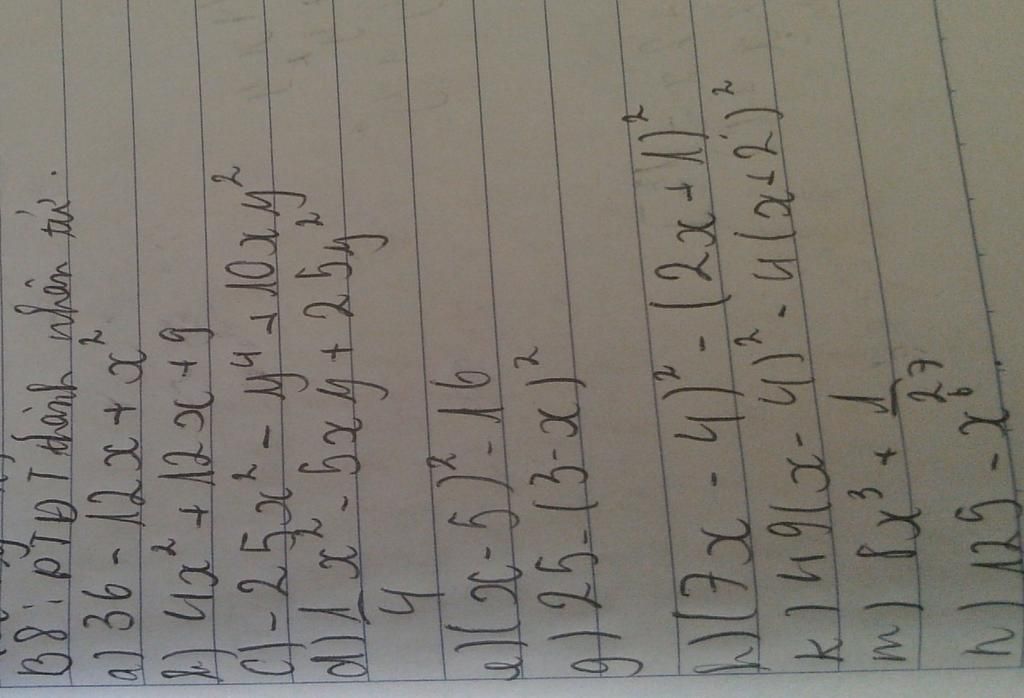 B8: PTĐT thành nhân tử.
a) 36 - 12x + x²
b) 4x² + 12x + 9
c) -25x² - y⁴ + 10xy²
d) 1/4 x² - 5xy + 25y²
e) (x - 5)² - 16
g) 25 - (3 - x)²
h) (7x - 4)² - (2x + 1)²
k) 49(x - 4)² - 4(x + 2)²
m) 8x³ + 1/27
n) 125 - x⁶